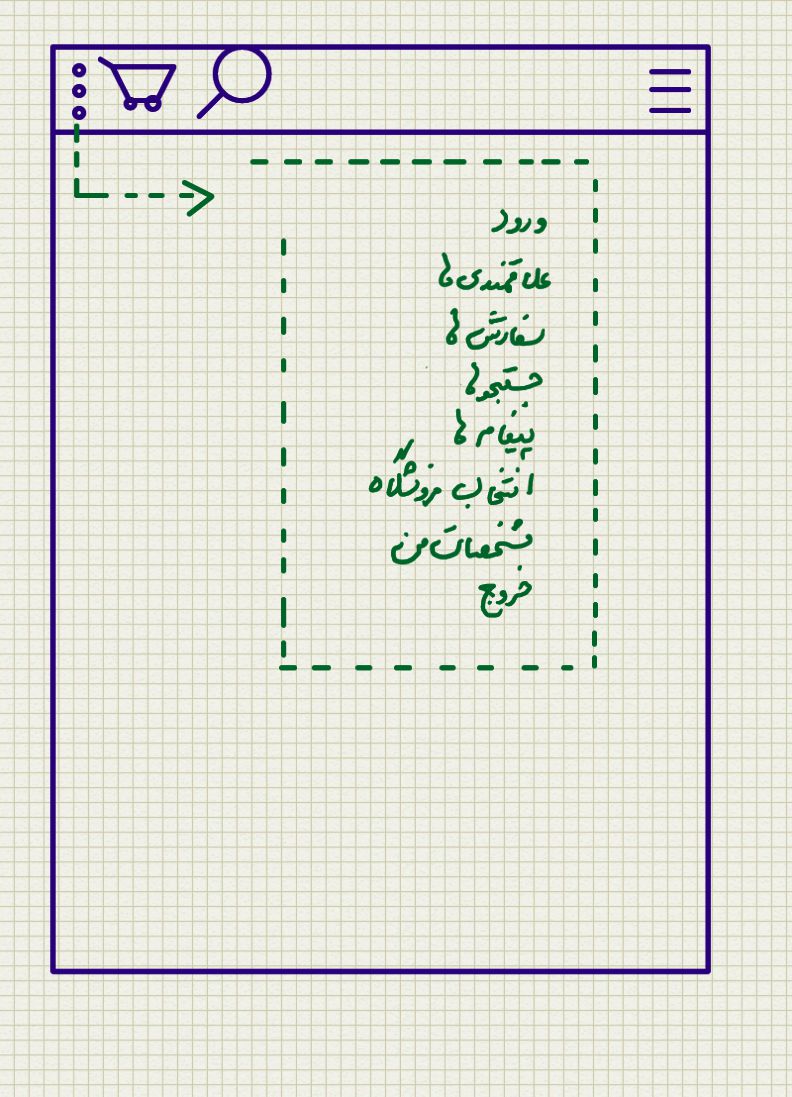 ورود
علاقمندی ها
سفارش ها
جستجوها
پیغام ها
انتخاب فروشگاه
مشخصات من
خروج